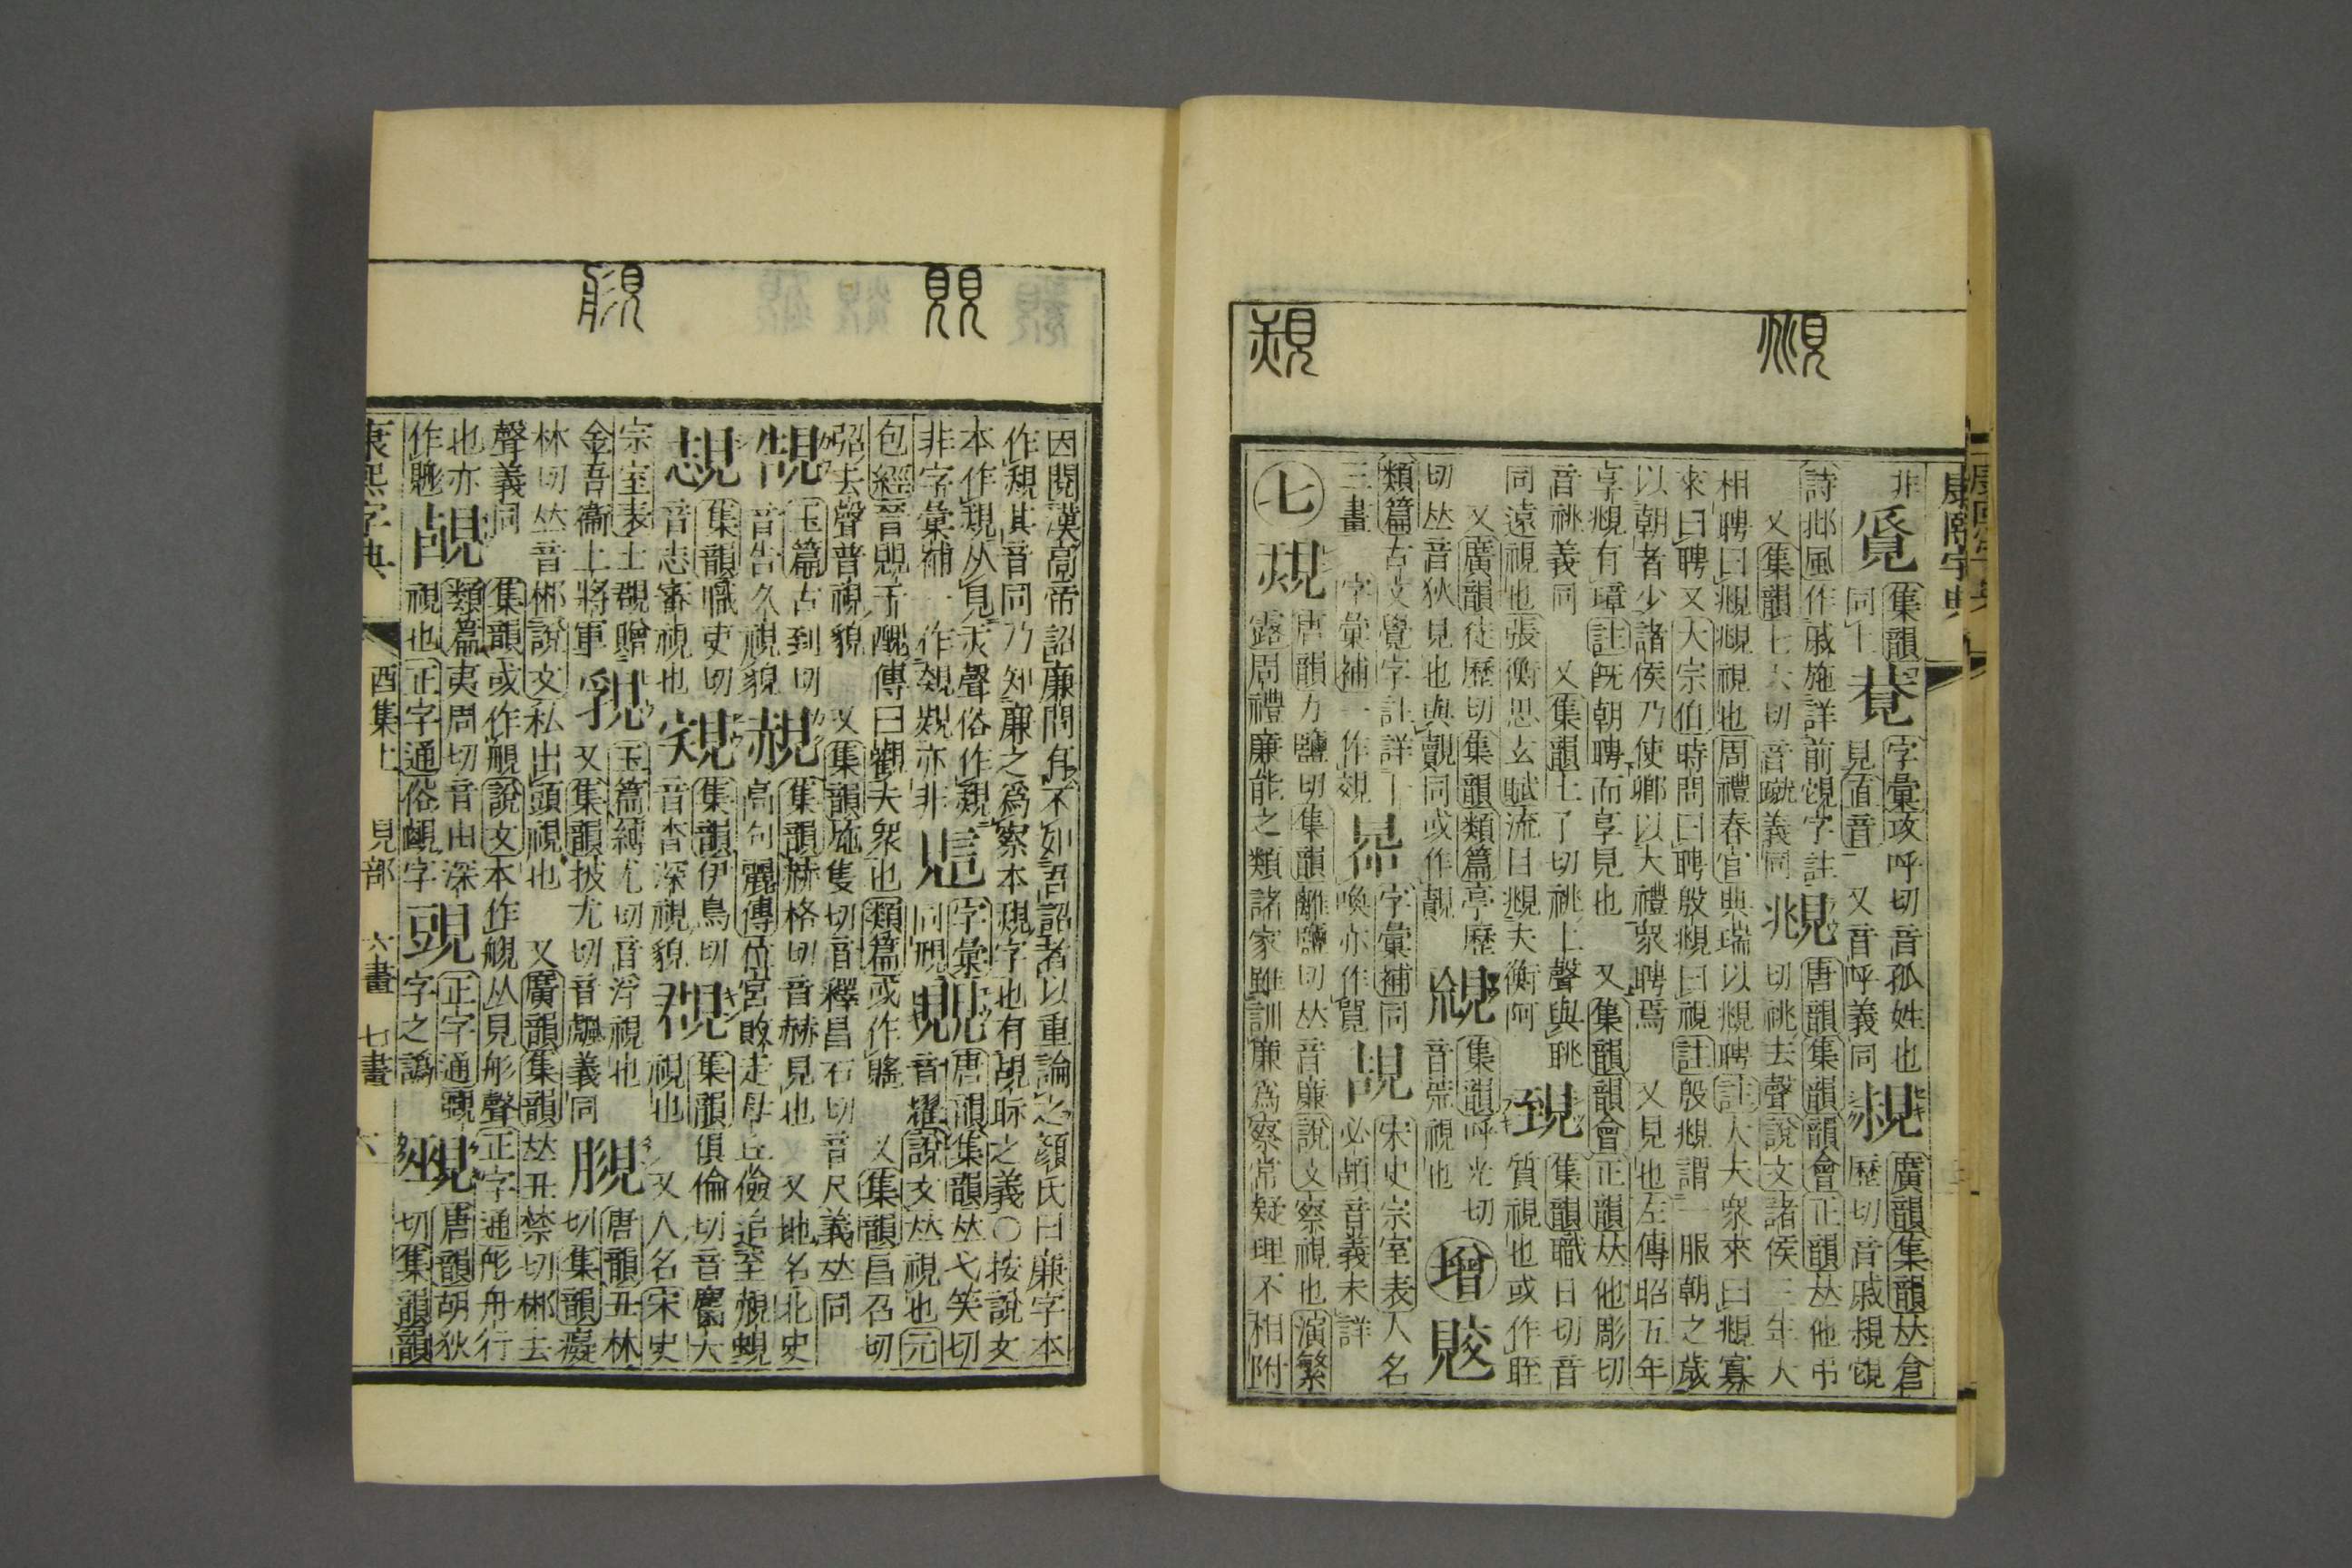 康熙字典
非
覛 集韻同上
覔 字彙攻呼切音孤姓也
見直音 又音呼義同
䙸 廣韻集韻𠀤倉
歷切音戚䙸覴
詩邶風作戚施詳前覴字註
又集韻七六切音蹴義同
覜 唐韻集韻韻會正韻𠀤他弔
切祧去聲說文諸侯三年大
相聘曰覜覜視也周禮春官典瑞以覜聘註大夫衆來曰覜寡
來曰聘又大宗伯時問曰聘殷覜曰視註殷覜謂一服朝之歲
以朝者少諸侯乃使卿以大禮衆聘焉 又見也左傳昭五年
享覜有璋註旣朝聘而享見也 又集韻韻會正韻𠀤他彫切
音祧義同 又集韻土了切祧上聲與眺
同遠視也張衡思玄賦流目覜夫衡阿
䙺 集韻職日切音
質視也或作眰
又廣韻徒歷切集韻類篇亭歷
切𠀤音狄見也與覿同或作覿
集韻呼光切
音荒視也
增
類篇古文覺字註詳十
三畫 字彙補一作覐
字彙補同
喚亦作覽
宋史宗室表人名
必頡音義未詳
七
覝
唐韻力鹽切集韻離鹽切𠀤音廉說文察視也演繁
露周禮廉能之類諸家雖訓廉爲察常疑理不相附
因閱漢高帝詔廉問有不如吾詔者以重論之顏氏曰廉字本
作覝其音同乃知廉之爲察本覝字也有覘眎之義○按說文
本作覝从見𡗜聲俗作覝
非字彙補一作覢覢亦非
字彙
同視
覞 唐韻集韻𠀤弋笑切
音耀說文𠀤視也元
包經晉覞于醜傳曰觀夫衆也類篇或作䁘 又集韻昌召切
弨去聲普視貌 又集韻施隻切音釋昌石切音尺義𠀤同
玉篇古到切
音告久視貌
䚂 集韻赫格切音赫見也 又地名北史
高句麗傳位宮敗走毋丘儉追至䚂峴
集韻職吏切
音志審視也
集韻伊鳥切
音杳深視貌
集韻俱倫切音麕大
視也 又人名宋史
宗室表士覠贈
金吾衞上將軍
玉篇縛尤切音浮視也
又集韻披尤切音飊義同
覹 唐韻丑林
切集韻癡
林切𠀤音郴說文私出頭視也 又廣韻集韻𠀤丑禁切郴去
聲義同 集韻或作覙說文本作覙从見肜聲正字通肜舟行
也亦
作䑣
類篇夷周切音由深
視也正字通俗覰字
正字通覿
字之譌
覡 唐韻胡狄
切集韻韻
康熙字典
酉集上 見部 六畫 七畫 六